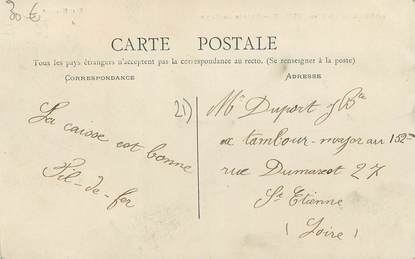 30 €
CARTE POSTALE
Tous les pays étrangers n'acceptent pas la correspondance au recto. (Se renseigner à la poste)
CORRESPONDANCE
ADRESSE
La caisse est bonne
Fil-de-fer
21)
Mr Duport J Bte
ex tambour-major au 152me
rue Dumarest 27
St Etienne
(Loire)